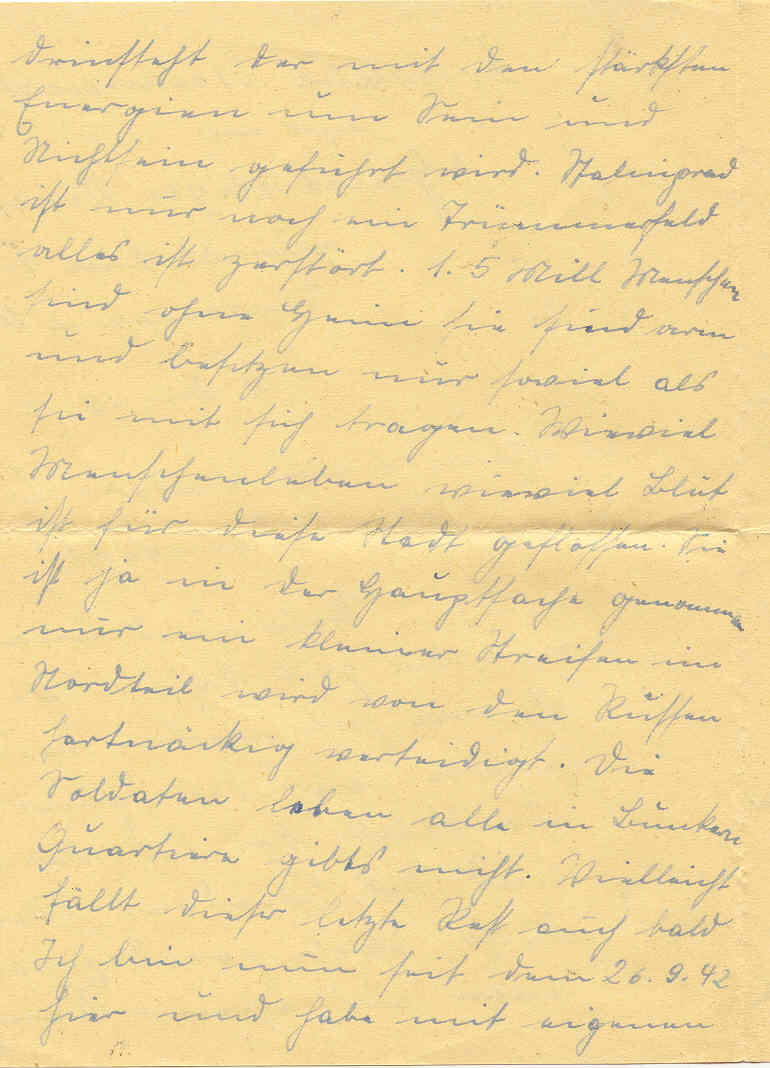 drinsteht der mit den stärksten
Energien um Sein und
Nichtsein geführt wird. Stalingrad
ist nur noch ein Trümmerfeld
alles ist zerstört. 1.5 Mill Menschen
sind ohne Heim sie sind arm
und besitzen nur soviel als
sie mit sich tragen. Wieviel
Menschenleben wieviel Blut
ist für diese Stadt geflossen. Sie
ist ja in der Hauptsache genommen
nur ein kleiner Streifen im
Nordteil wird von den Russen
hartnäckig verteidigt. Die
Soldaten leben alle in Bunkern
Quartiere gibts nicht. Vielleicht
fällt dieser letzte Rest auch bald
Ich bin nun seit dem 26.9.42
hier und habe mit eigenen